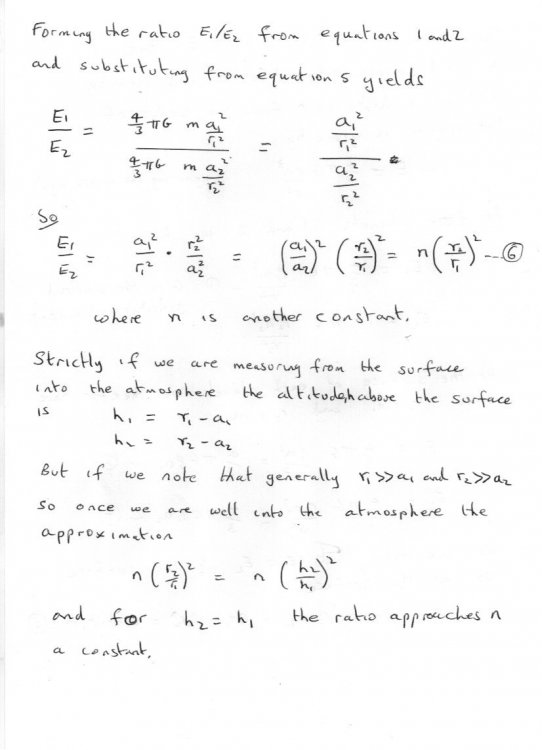 Forming the ratio E₁/E₂ from equations 1 and 2
and substituting from equation 5 yields
E₁/E₂ = (4/3 πG m a₁²/r₁²) / (4/3 πG m a₂²/r₂²) = (a₁²/r₁²) / (a₂²/r₂²)
So
E₁/E₂ = a₁²/r₁² · r₂²/a₂² = (a₁/a₂)² (r₂/r₁)² = n(r₂/r₁)² --- ⑥
where n is another constant.
Strictly if we are measuring from the surface
into the atmosphere the altitude, h above the surface
is h₁ = r₁ - a₁
h₂ = r₂ - a₂
But if we note that generally r₁ >> a₁ and r₂ >> a₂
so once we are well into the atmosphere the
approximation
n(r₂/r₁)² = n(h₂/h₁)²
and for h₂ = h₁ the ratio approaches n
a constant.